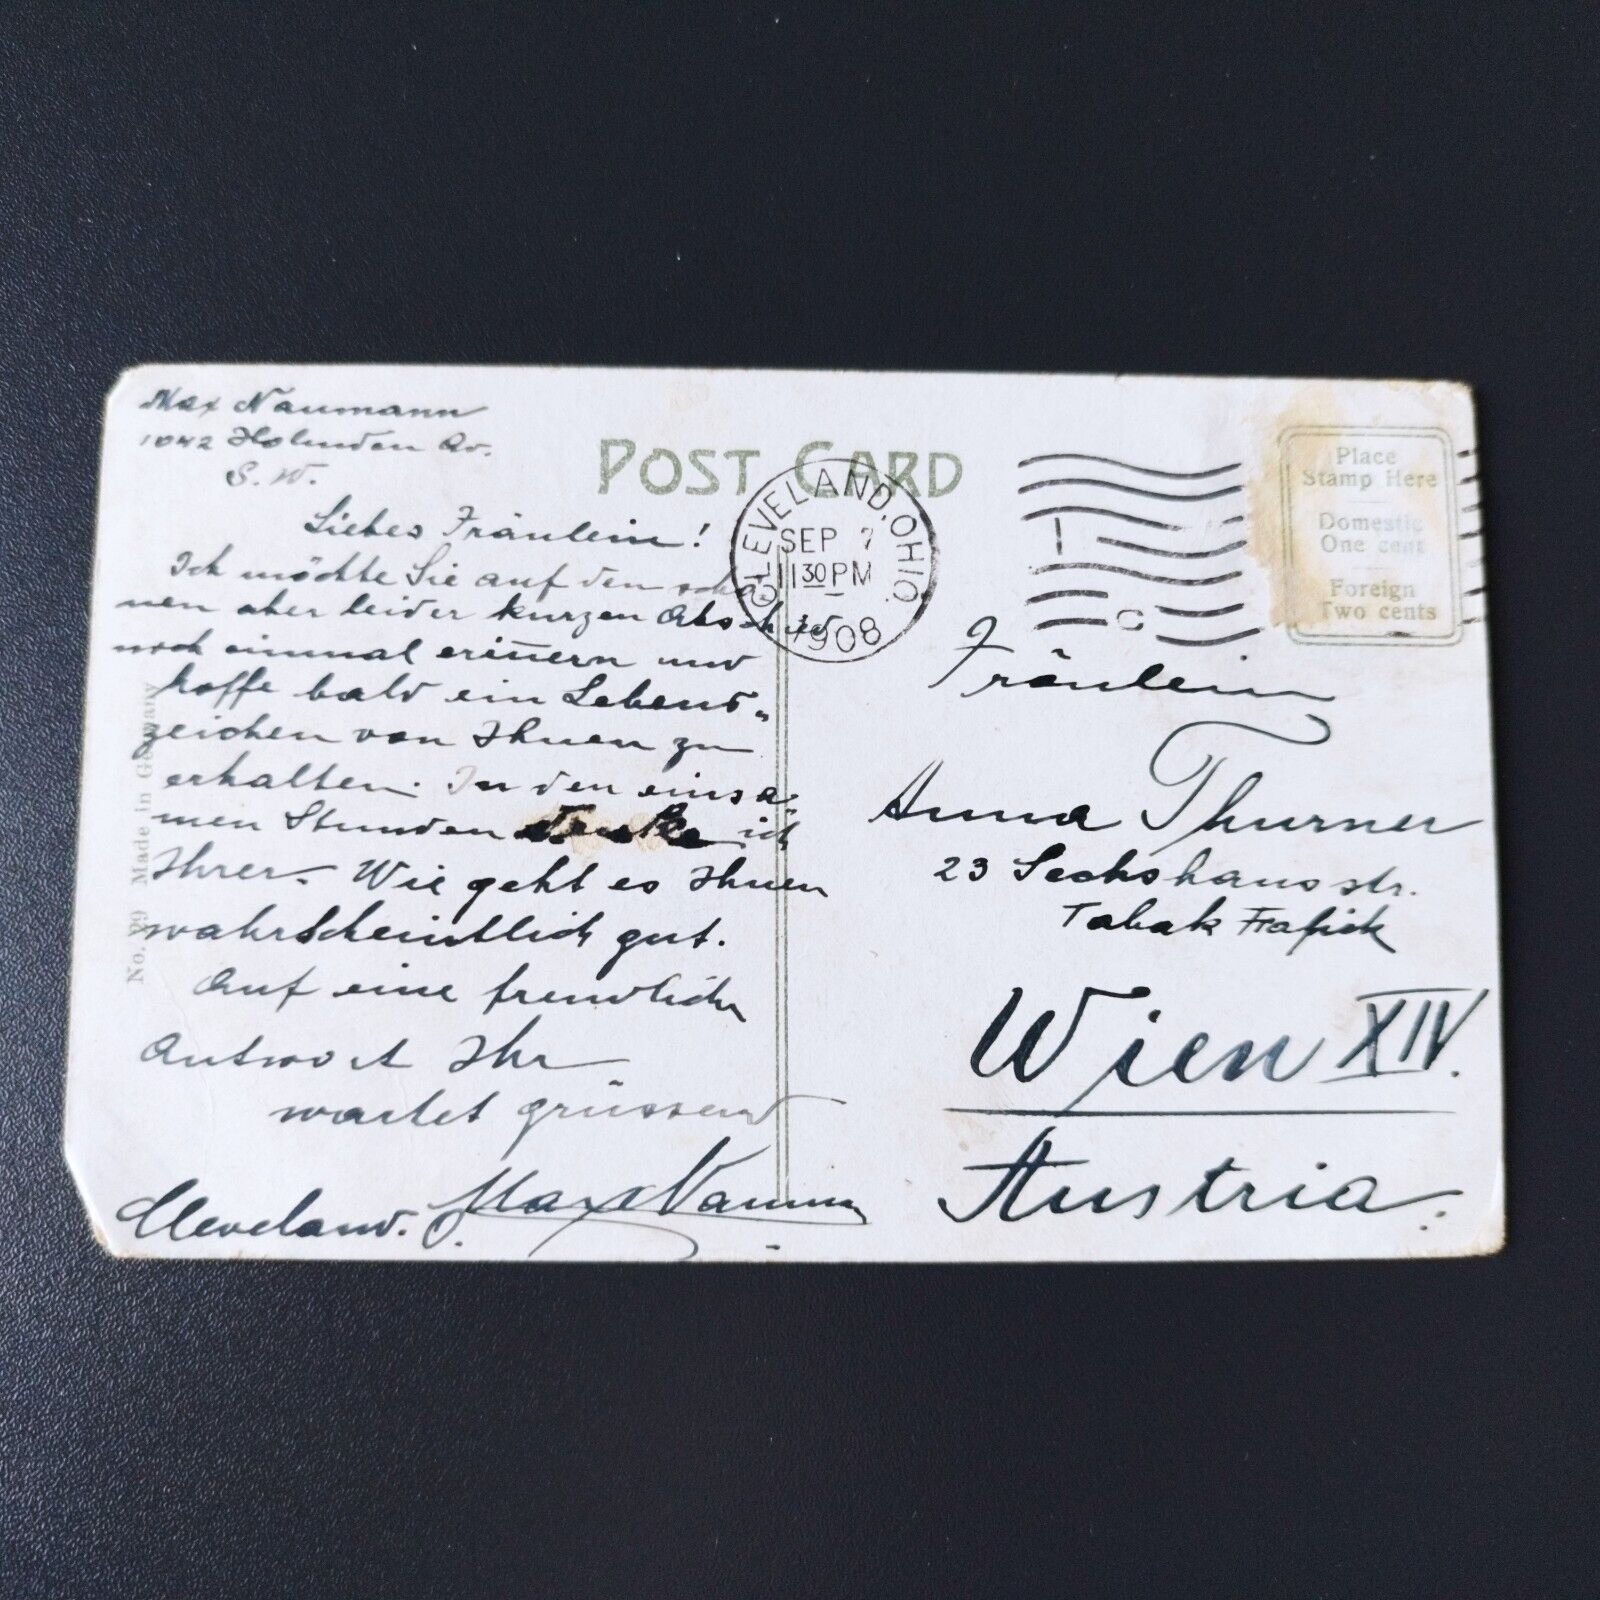 Max Naumann
1042 Holmden Av.
S. W.
Liebes Fräulein!
Ich möchte Sie auf den schö
nen aber leider kurzen Abschied
noch einmal erinnern und
hoffe bald ein Lebens-
zeichen von Ihnen zu
erhalten. In den einsa
men Stunden denke ich
Ihrer. Wie geht es Ihnen
wahrscheintlich gut.
Auf eine freundliche
Antwort Ihr
wartet grüssend
Cleveland. O. Max Naumann
No. 99 Made in Germany
POST CARD
CLEVELAND, OHIO.
SEP 7
1130 PM
1908
Place
Stamp Here
Domestic
One cent
Foreign
Two cents
Fräulein
Anna Thurner
23 Sechshausstr.
Tabak Trafick
Wien XIV.
Austria.